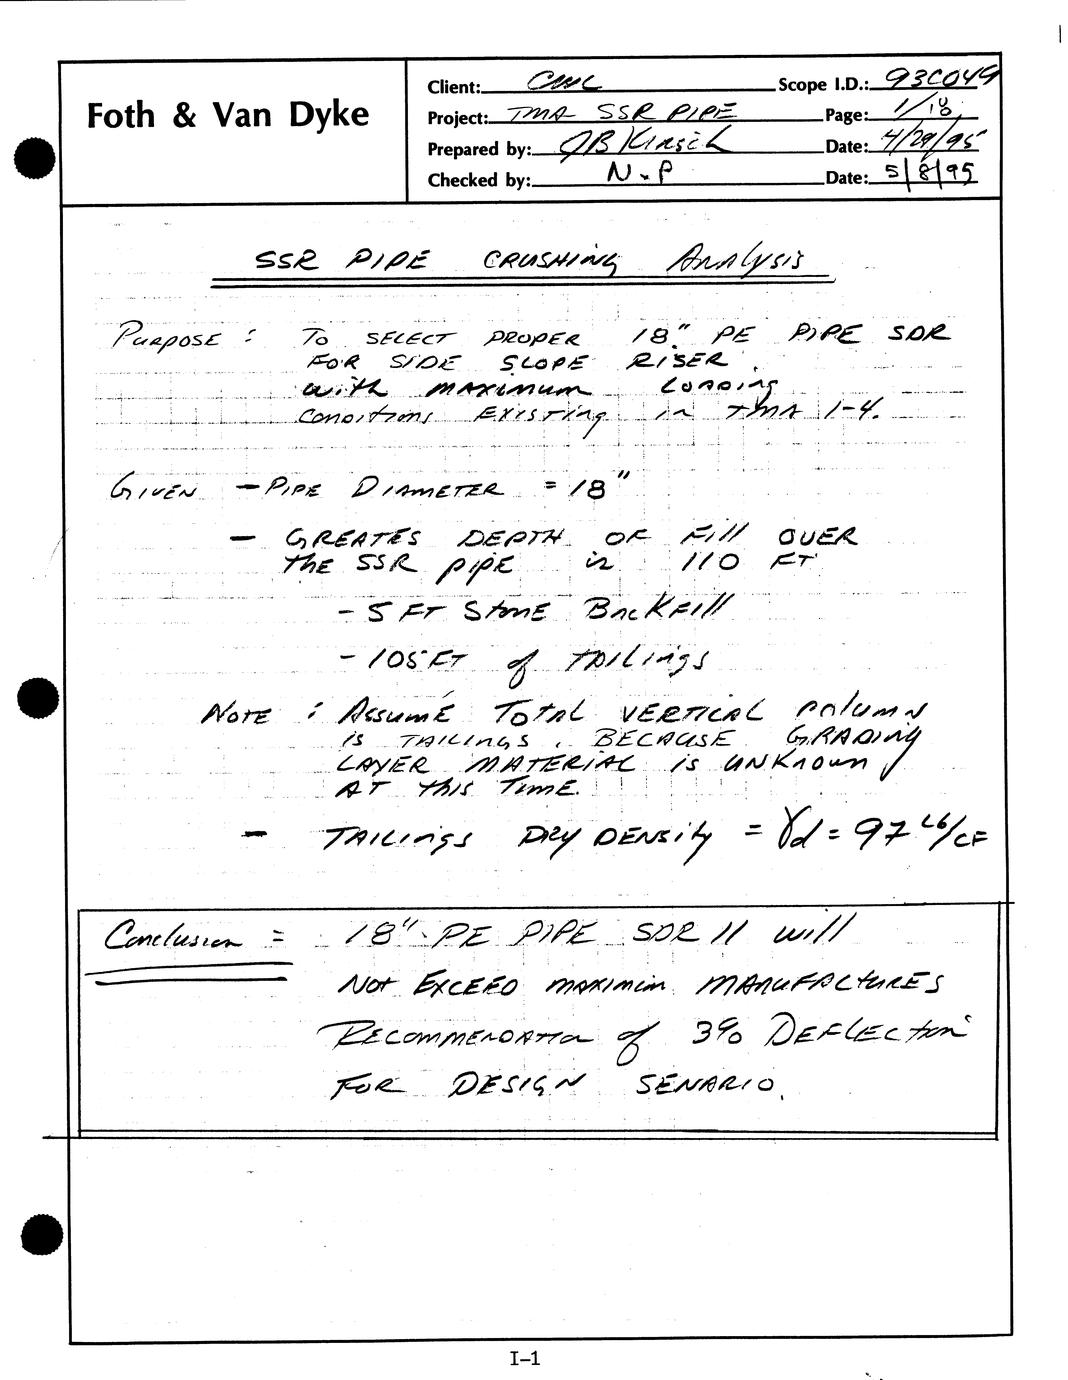 Foth & Van Dyke
Client: CMC Scope I.D.: 93C049
Project: TMA SSR PIPE Page: 1/18
Prepared by: JB Kirsch Date: 4/29/95
Checked by: N.P Date: 5/8/95
SSR PIPE CRUSHING Analysis
PURPOSE : To SELECT PROPER 18" PE PIPE SDR
FOR SIDE SLOPE RISER
with maximum LOADING
conditions Existing in TMA 1-4.
GIVEN - PIPE DIAMETER = 18"
- GREATES DEPTH OF Fill OVER
the SSR pipe is 110 FT
- 5 FT Stone Backfill
- 105 FT of tailings
NOTE : Assume Total VERTICAL column
is TAILINGS, BECAUSE GRADING
LAYER MATERIAL is UNKnown
AT this Time.
- TAILINGS DRY DENSITY = γd = 97 Lb/CF
Conclusion = 18" PE PIPE SDR 11 will
Not EXCEED maximim MANUFACTURES
RECOMMENDATION of 3% DEFLECTION
FOR DESIGN SENARIO.
I-1